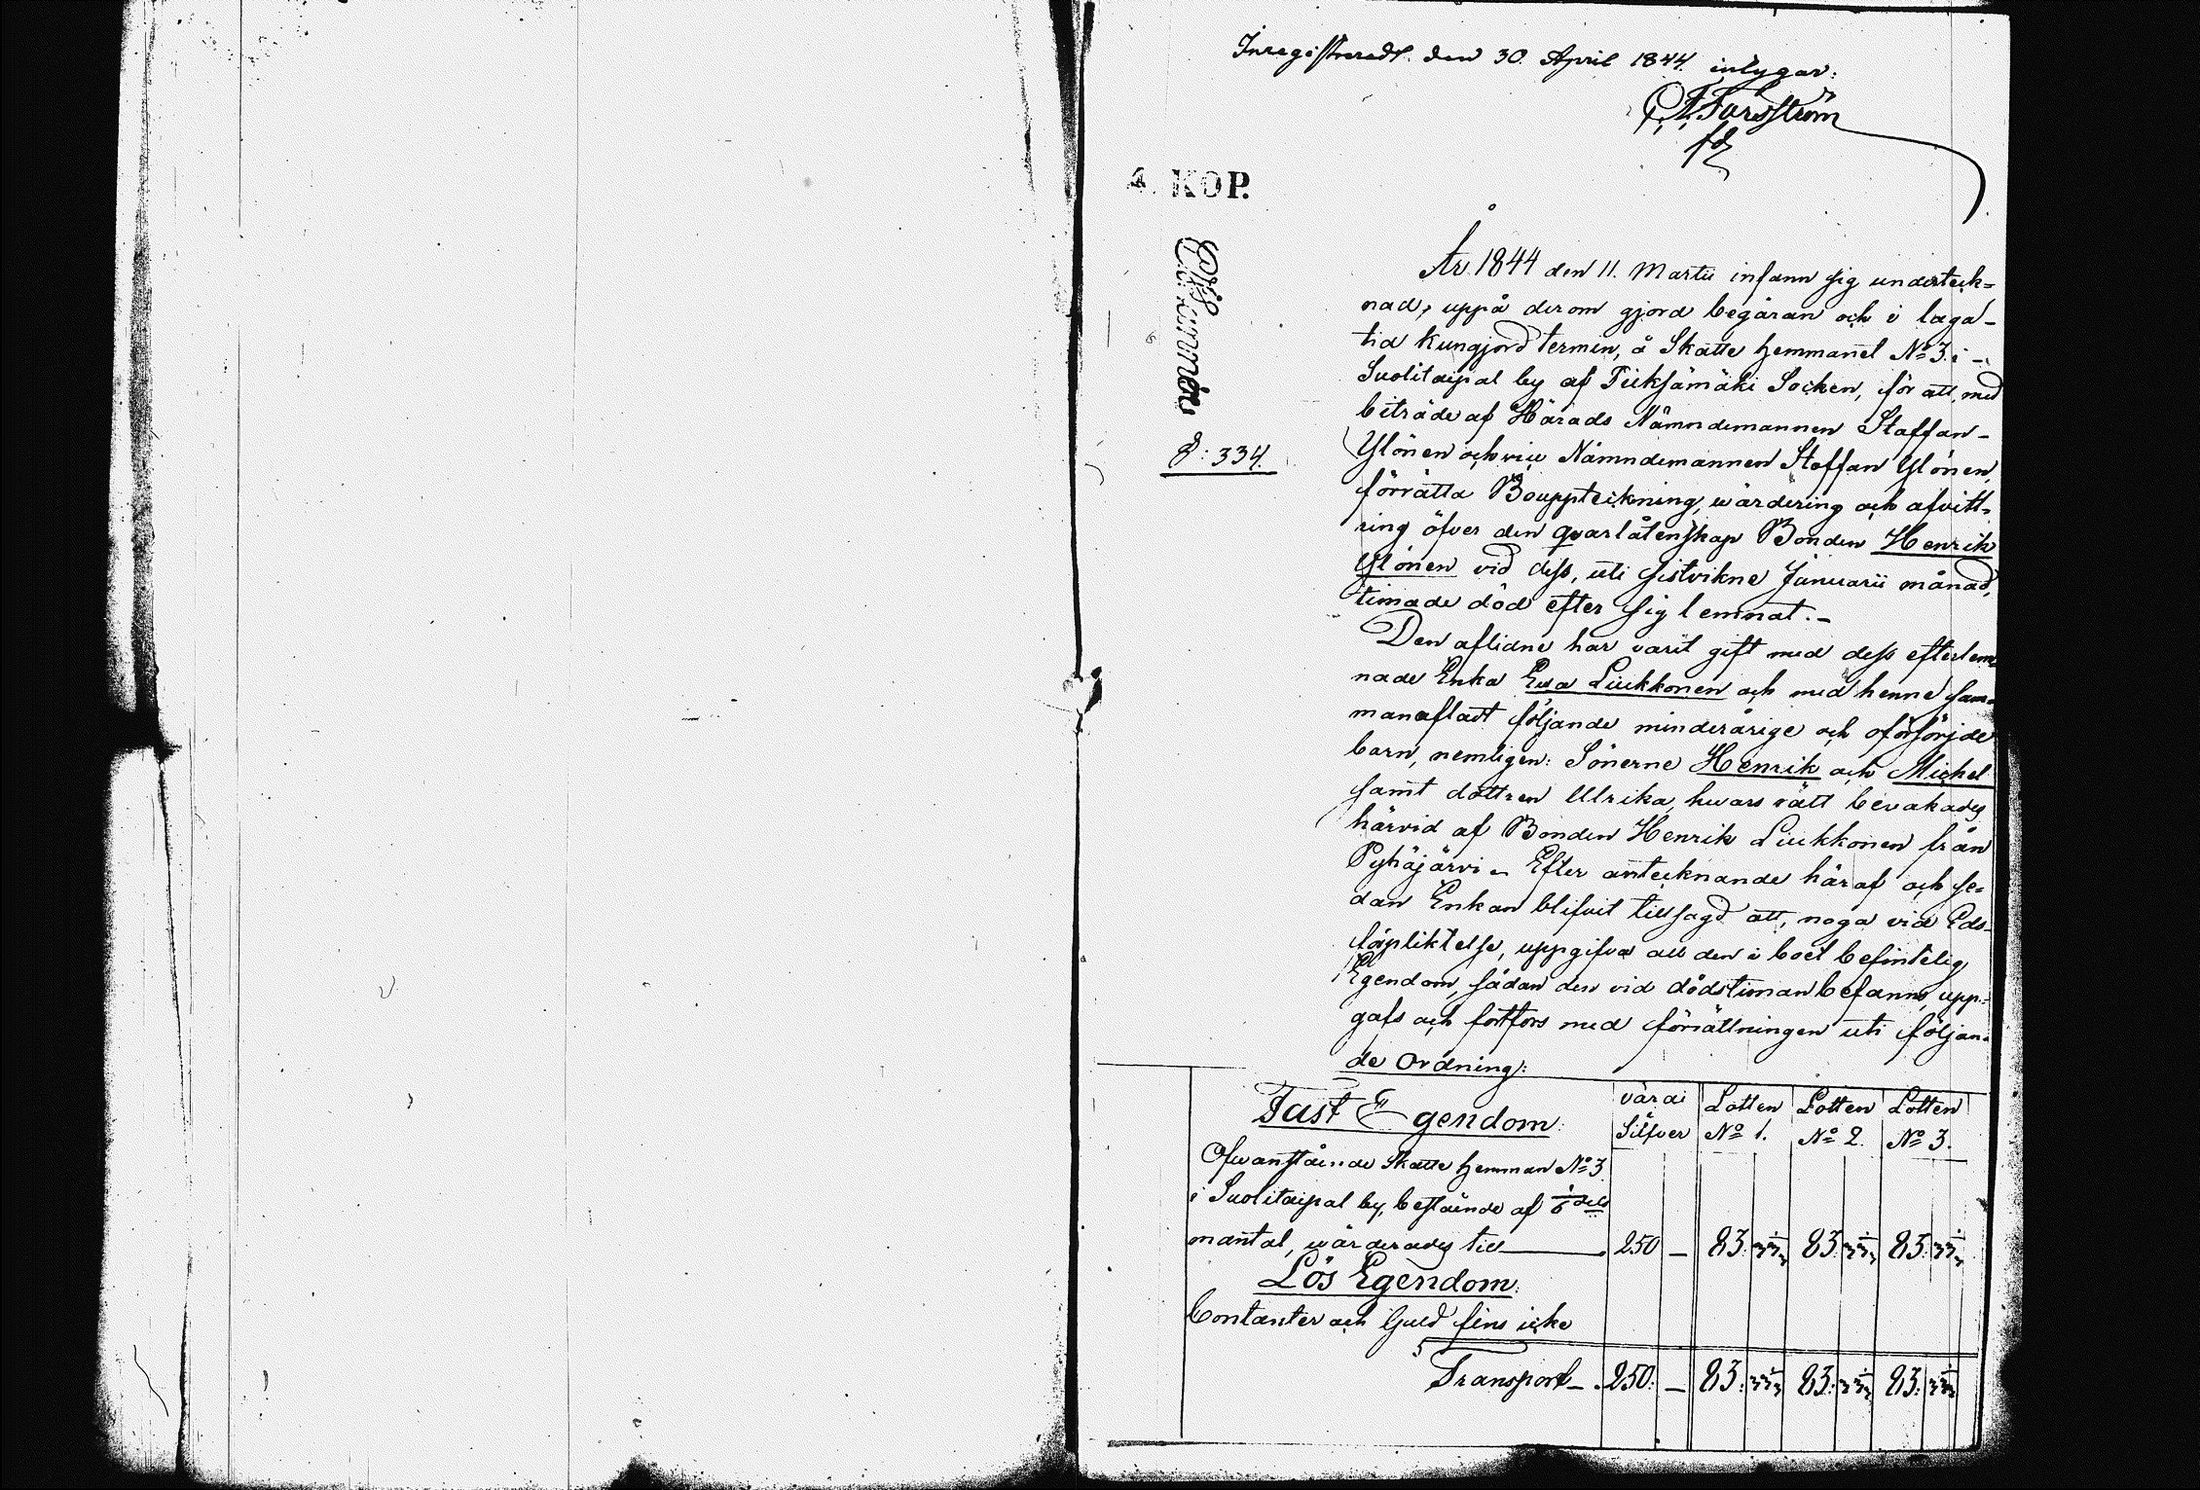 Inregistreradt den 30 April 1844. intygar:
4. KOP.
§: 334.
År 1844 den 11. Martii infann sig underteck=
nad, uppå derom gjord begäran och i laga-
tid kungjord termin, å Skatte hemmanet No 3. i -
Suolitaipal by af Pieksämäki Socken, för att, med
biträde af Härads Nämndemannen Staffan -
Ylönen och vice Nämndemannen Staffan Ylönen,
förrätta Bouppteckning, wärdering och afvitt-
ring öfver den qvarlåtenskap Bonden Henrik
Ylönen vid dess, uti sistvikne Januarii månad,
timade död efter sig lemnat. -
Den aflidne har varit gift med dess efterlem-
nade Enka Ewa Liukkonen och med henne sam-
manaflat följande minderårige och oförsörjde
barn, nemligen: Sönerne Henrik och Michel
samt dottren Ulrika, hwars rätt bevakades
härvid af Bonden Henrik Liukkonen från
Pyhäjärvi. Efter antecknande häraf och se-
dan Enkan blifvit tillsagd att, noga vid Eds-
förpliktelse, uppgifva all den i boet befintelig
Egendom, sådan den vid dödstiman befanns, upp-
gafs och fortfors med förrättningen uti följan-
de Ordning:
Fast Egendom: värdi Silfver Lotten No 1. Lotten No 2. Lotten No 3.
Ofwanstående Skatte hemman No 3
i Suolitaipal by, bestående af 1/6 dels
mantal, wärderades till 250 — 83. 33 1/3 83. 33 1/3 83. 33 1/3
Lös Egendom:
Contanter och Guld fins icke
Transport - 250: — 83: 33 1/3 83: 33 1/3 83: 33 1/3